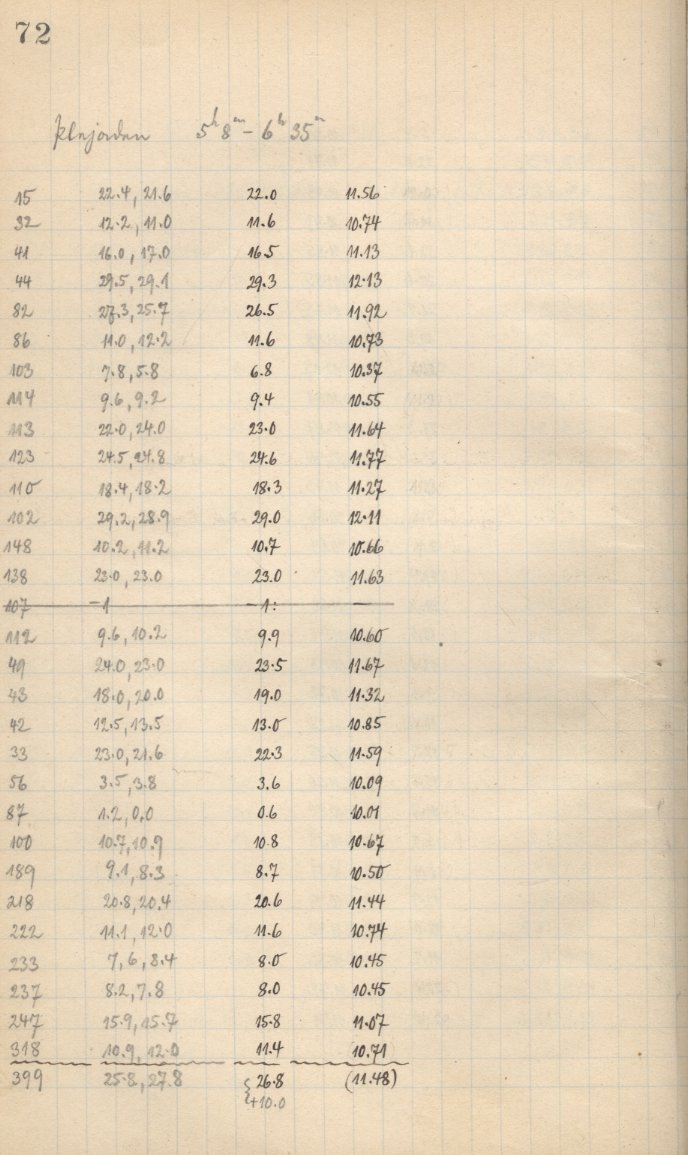 72
Plejaden 5h 8m – 6h 35m
15 22.4, 21.6 22.0 11.56
32 12.2, 11.0 11.6 10.74
41 16.0, 17.0 16.5 11.13
44 29.5, 29.1 29.3 12.13
82 27.3, 25.7 26.5 11.92
86 11.0, 12.2 11.6 10.73
103 7.8, 5.8 6.8 10.37
114 9.6, 9.2 9.4 10.55
113 22.0, 24.0 23.0 11.64
123 24.5, 24.8 24.6 11.77
110 18.4, 18.2 18.3 11.27
102 29.2, 28.9 29.0 12.11
148 10.2, 11.2 10.7 10.66
138 23.0, 23.0 23.0 11.63
107 -1 -1: —
112 9.6, 10.2 9.9 10.60
49 24.0, 23.0 23.5 11.67
43 18.0, 20.0 19.0 11.32
42 12.5, 13.5 13.0 10.85
33 23.0, 21.6 22.3 11.59
56 3.5, 3.8 3.6 10.09
87 1.2, 0,0 0.6 10.01
100 10.7, 10.9 10.8 10.67
189 9.1, 8.3 8.7 10.50
218 20.8, 20.4 20.6 11.44
222 11.1, 12.0 11.6 10.74
233 7,6, 8.4 8.0 10.45
237 8.2, 7.8 8.0 10.45
247 15.9, 15.7 15.8 11.07
318 10.9, 12.0 11.4 10.71
399 25.8, 27.8 { 26.8 (11.48)
+10.0